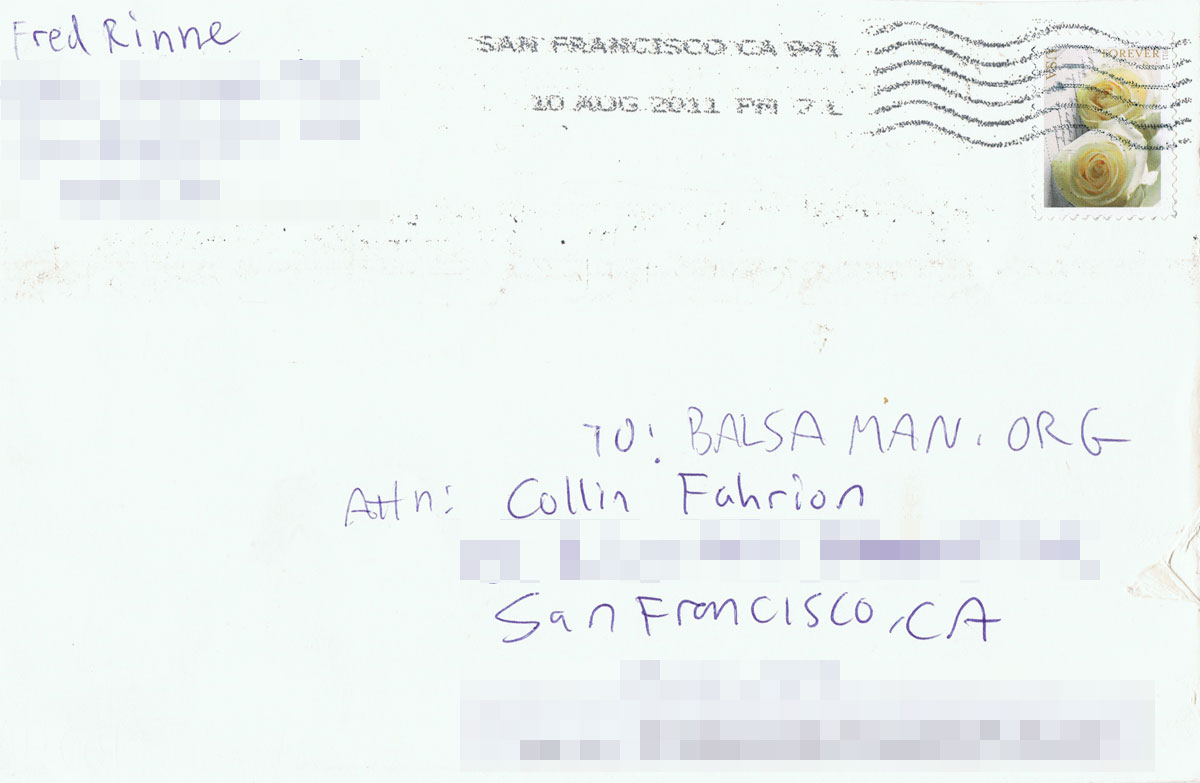 Fred Rinne
SAN FRANCISCO CA 941
10 AUG 2011 PM 7 L
FOREVER
TO: BALSA MAN. ORG
Attn: Collin Fahrion
San Francisco, CA